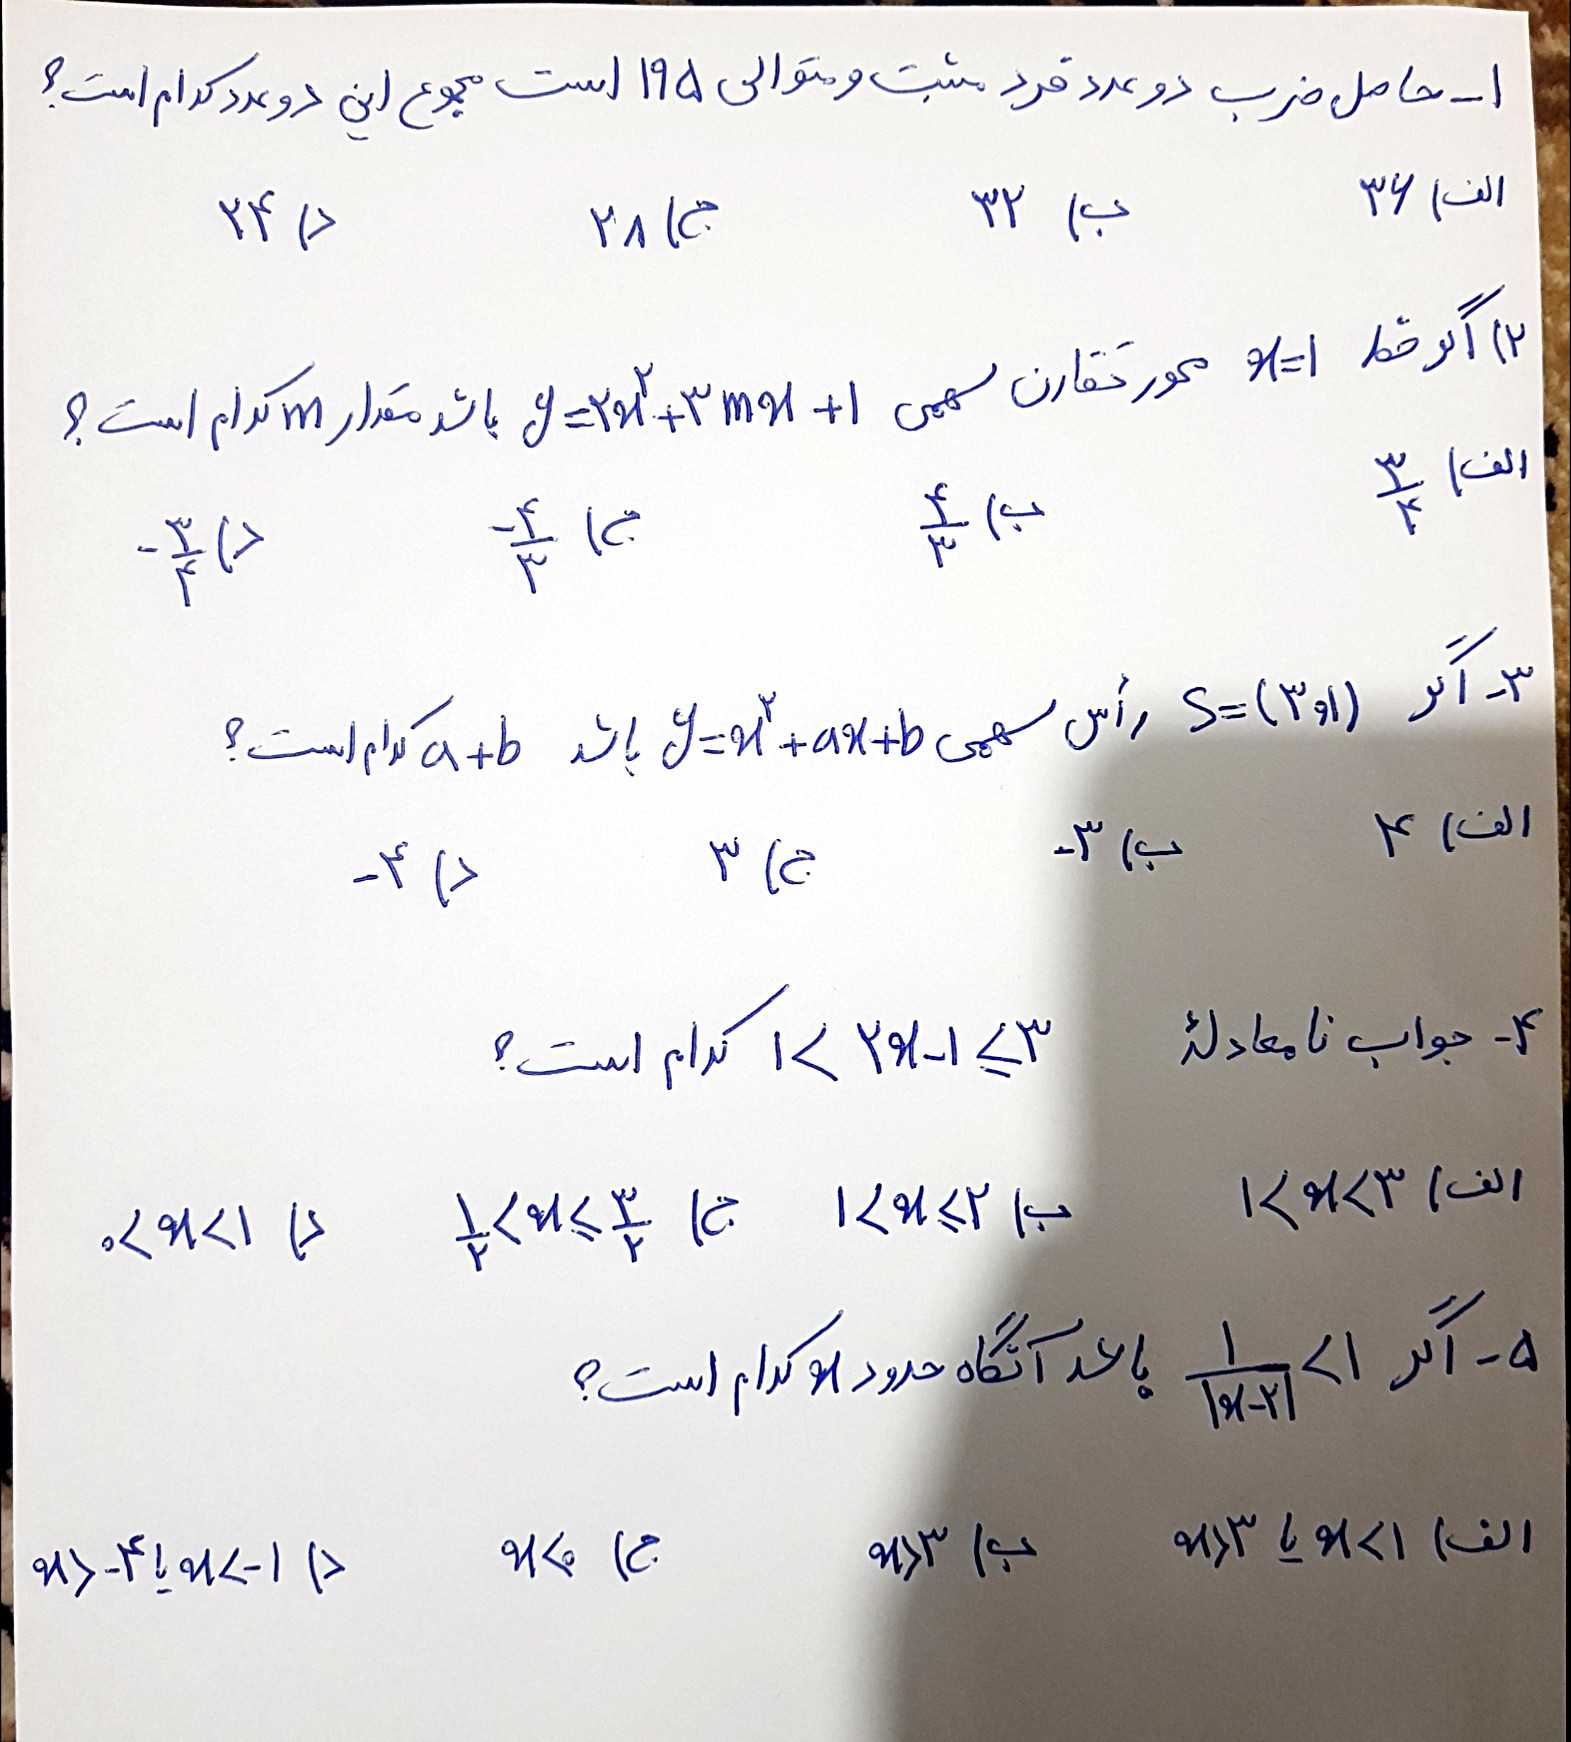 ۱- حاصل ضرب دو عدد فرد مثبت و متوالی ۱۹۵ است مجموع این دو عدد کدام است؟
الف) ۳۶ ب) ۳۲ ج) ۲۸ د) ۲۴
۲) اگر خط x=۱ محور تقارن سهمی y=۲x^۲+۳mx+۱ باشد مقدار m کدام است؟
الف) ۳/۴ ب) ۴/۳ ج) -۴/۳ د) -۳/۴
۳- اگر S=(۳,۱) رأس سهمی y=x^۲+ax+b باشد a+b کدام است؟
الف) ۴ ب) -۳ ج) ۳ د) -۴
۴- جواب نامعادلهٔ ۱<۲x-۱≤۳ کدام است؟
الف) ۱<x<۳ ب) ۱<x≤۲ ج) ۱/۲<x≤۳/۲ د) ۰<x<۱
۵- اگر ۱/|x-۲|<۱ باشد آنگاه حدود x کدام است؟
الف) x<۱ یا x>۳ ب) x>۳ ج) x<۰ د) x<-۱ یا x>-۴